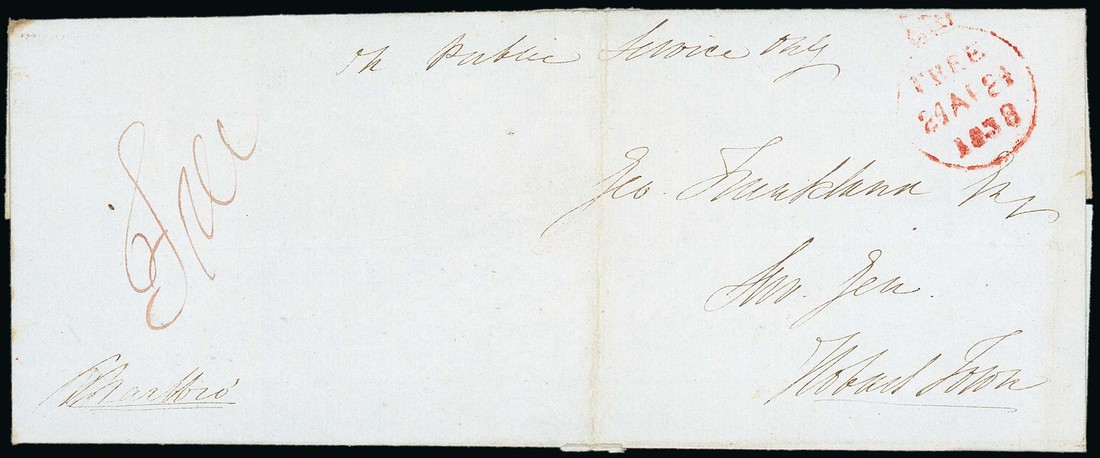 On Public Service Only
FREE
21 AP 21
1838
Free
Geo. Frankland Esq
Sur. Gen.
Hobart Town